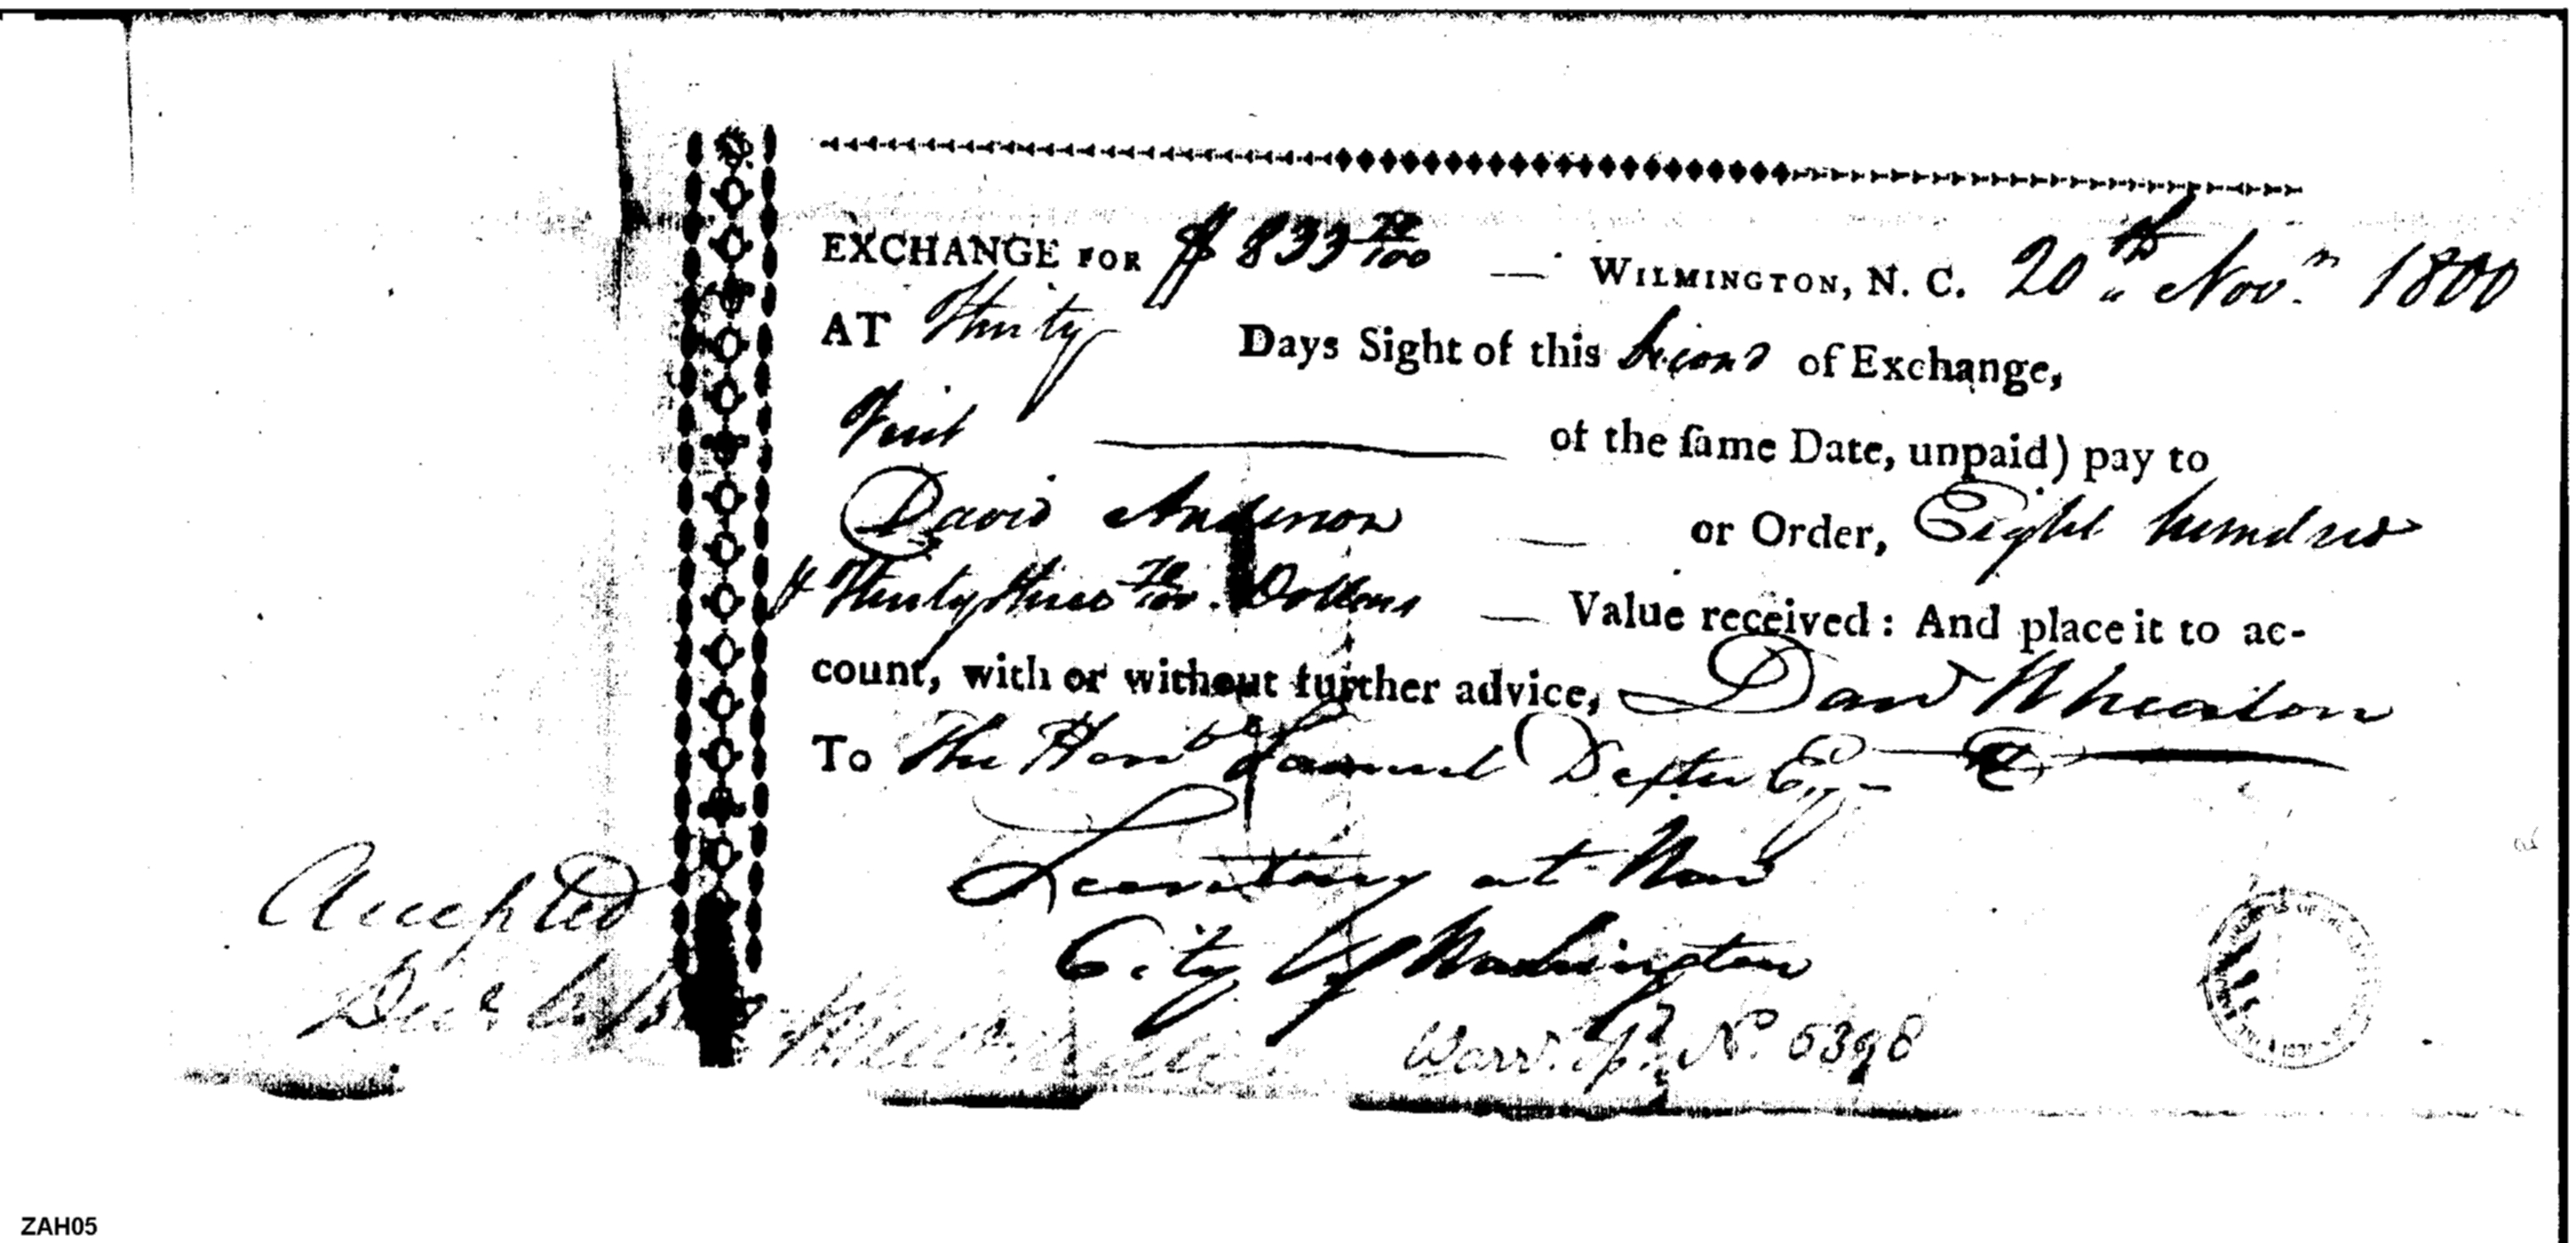 EXCHANGE FOR $ 833 70/100 — WILMINGTON, N. C. 20th Novr. 1800
AT Thirty Days Sight of this Second of Exchange,
First of the ſame Date, unpaid) pay to
David Anderson — or Order, Eight hundred
& Thirty three 70/100 Dollars — Value received: And place it to ac-
count, with or without further advice, Danl Wheaton
To The Honble Samuel Dexter Esqr
Secretary at War
City of Washington
Accepted
Warrt. No. 5398
ZAH05